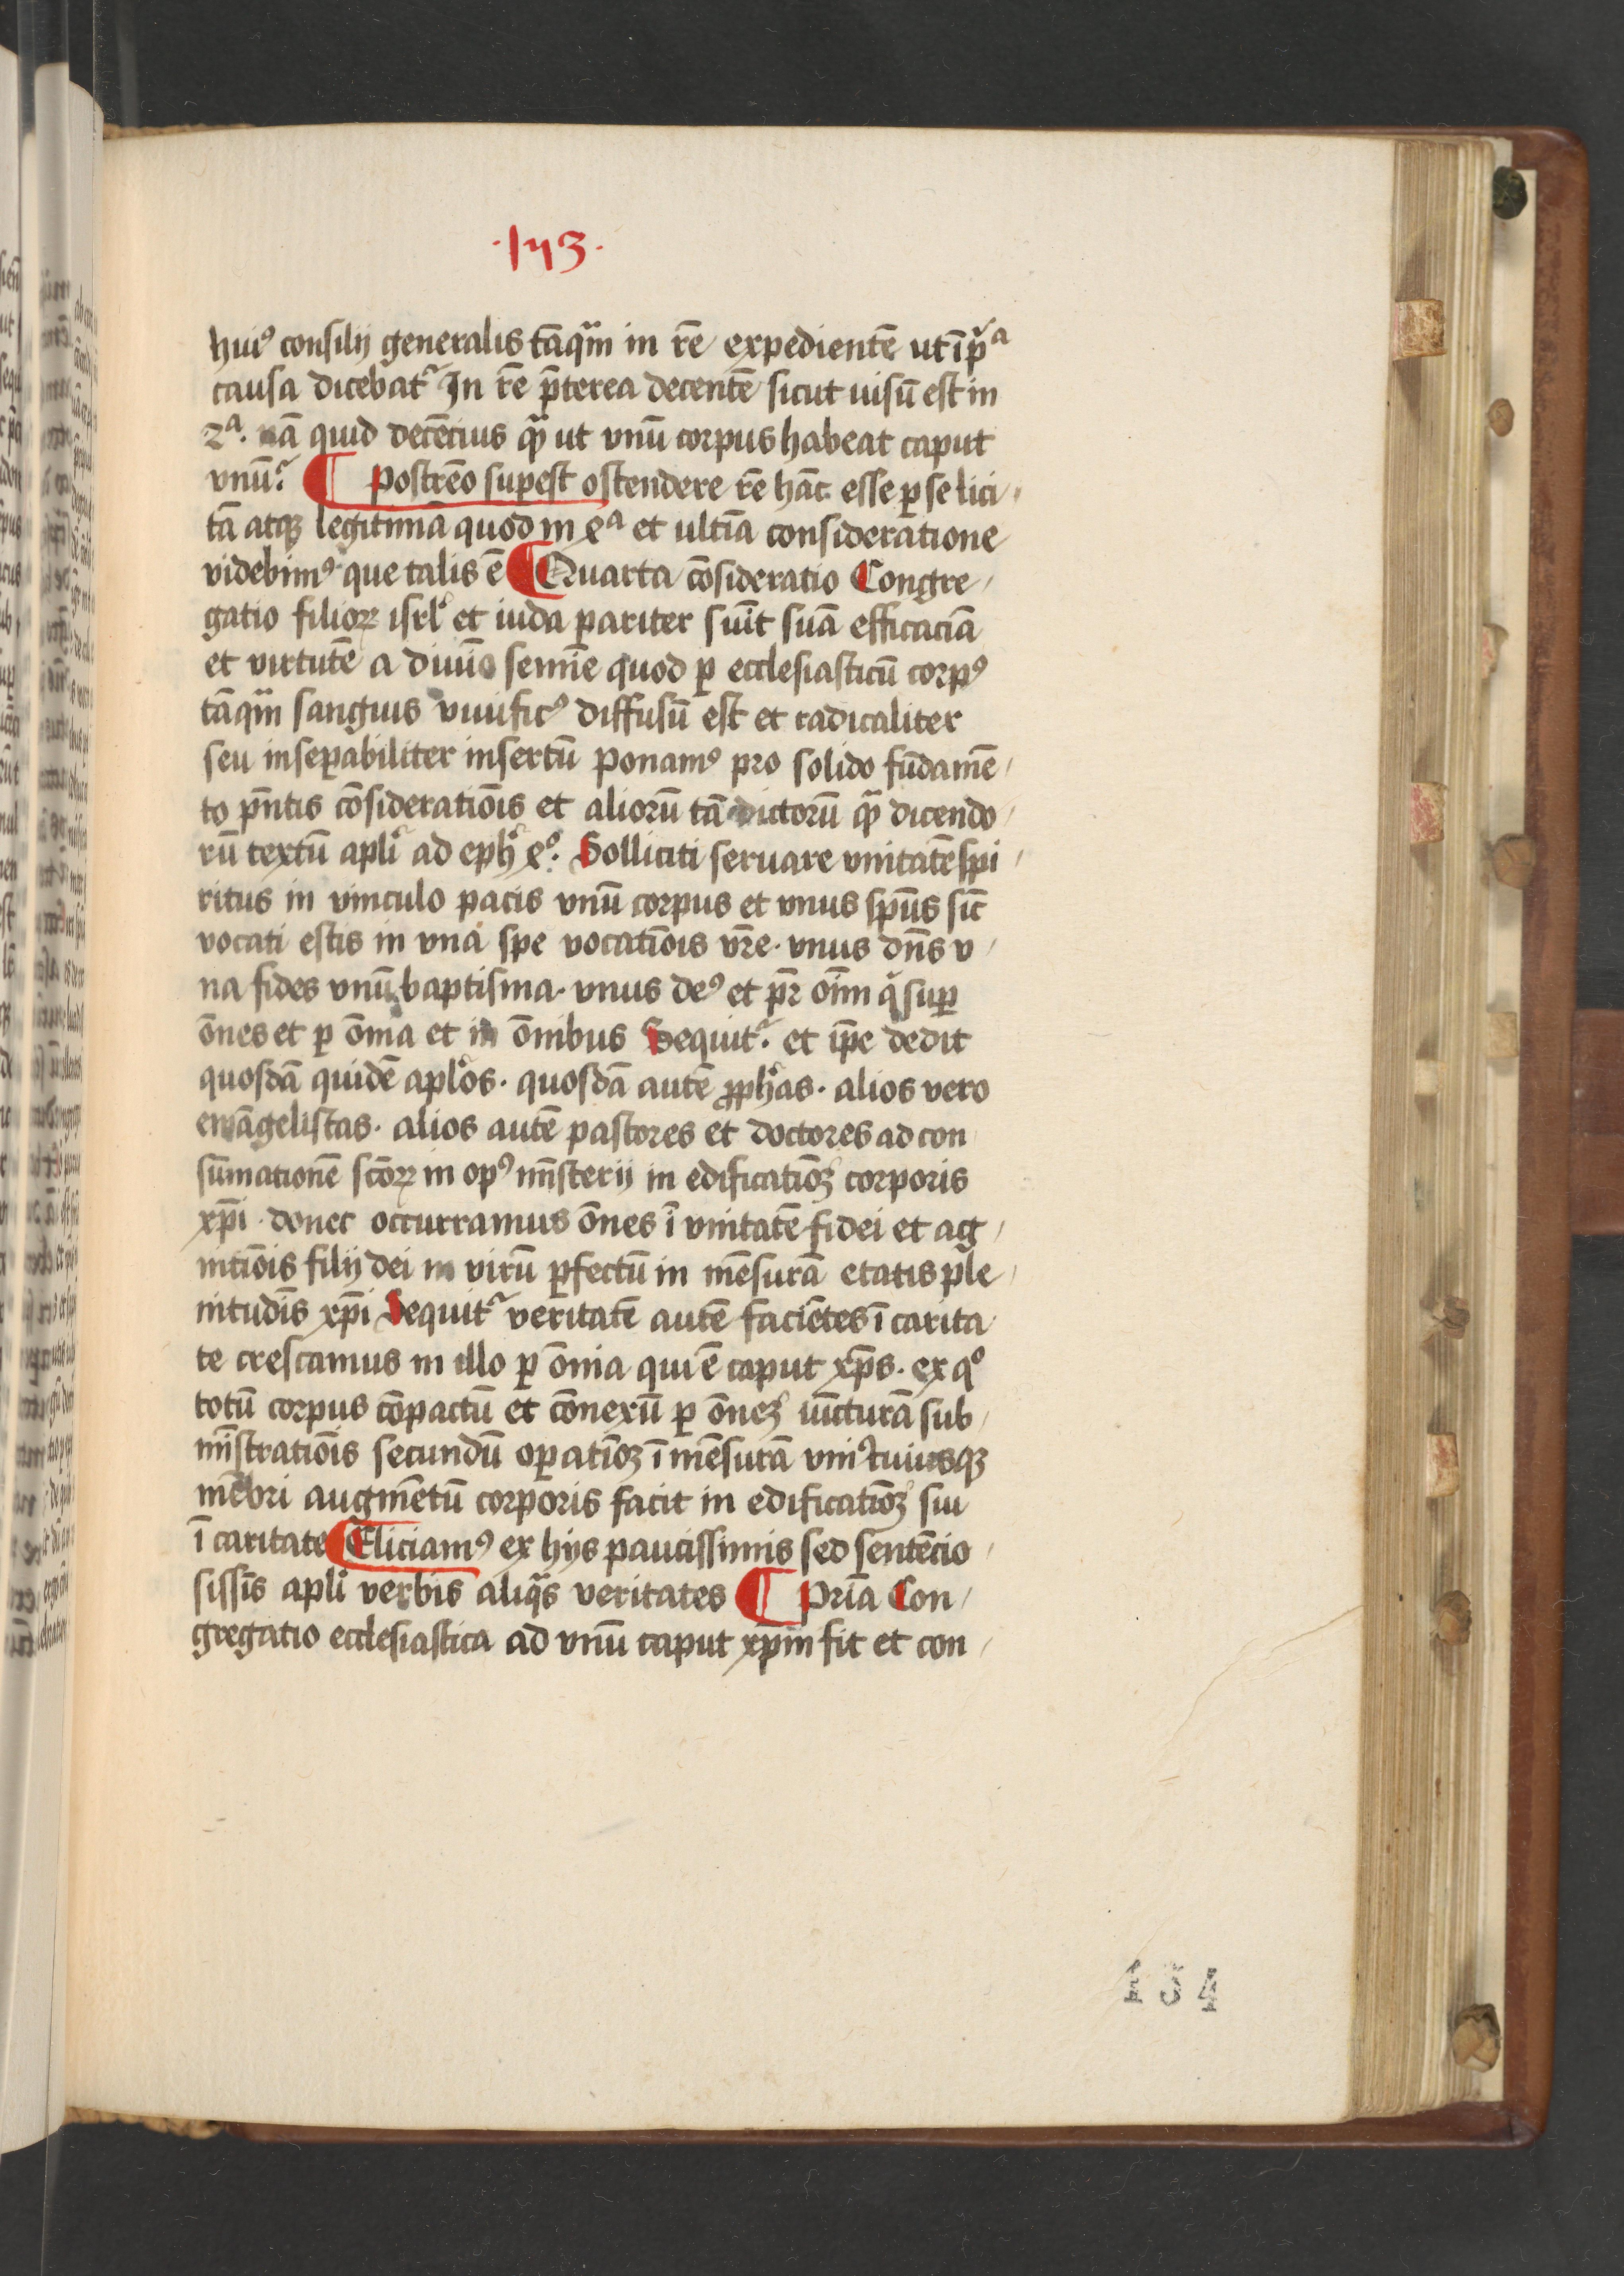 ·143·
huiꝰ consilij generalis tāqͣm in rē expedientē ut ī pͥᵃ
causa dicebatᷣ In rē p̄terea decentē sicut uisū est in
2ᵃ. nā quid decēcius qͣ̄ ut vnū corpus habeat caput
vnū? ¶ Postrēo suꝑest ostendere rē hāc esse ꝑ se lici
tā atqꝫ legitimā quod in 4ᵃ et ultīa consideratione
videbimꝰ que talis ē ¶ Quarta cōsideratio Congre
gatio filioꝝ isrl̓ et iuda pariter sūīt suā efficaciā
et virtutē a diuīo semīe quod ꝑ ecclesiasticū corpꝰ
tāqͣm sanguis viuificꝰ diffusū est et radicaliter
seu inseꝑabiliter insertū Ponamꝰ pro solido fūdamē
to p̄ntis cōsideratiōis et aliorū tā dictorū qͣ̄ dicendo
rū textū apl̓i ad eph̓ 4°. Solliciti seruare vnitatē spi
ritus in vinculo pacis vnū corpus et vnus sp̄us sic̄
vocati estis in vna spe vocatiōis vr̄e· vnus dn̄s v
na fides vnū baptisma· vnus deꝰ et pr̄ oīm qͥ suꝑ
ōnes et ꝑ ōnia et in ōnibus Sequitᷣ. et ip̄e dedit
quosdā quidē apl̓os· quosdā autē ꝓph̓as· alios vero
ewāgelistas· alios autē pastores et doctores ad con
sūmationē scōꝝ in opꝰ mīsterij in edificatiōꝫ corporis
xp̄i· donec occurramus ōnes ī vnitatē fidei et ag
nitiōis filij dei in virū ꝑfectū in mēsurā etatis ple
nitudīs xp̄i Sequitᷣ veritatē autē faciētes ī carita
te crescamus in illo ꝑ ōnia qui ē caput xp̄s· ex q°
totū corpus cōpactū et cōnexū ꝑ ōneꝫ iūcturā sub
mīstratiōis secundū oꝑatiōꝫ ī mēsurā vniꝰcuiusqꝫ
mēbri augmētū corporis facit in edificatiōꝫ sui
ī caritate ¶ Eliciamꝰ ex hijs paucissimis sed sentēcio
sissīs apl̓i verbis aliqͣs veritates ¶ Pria̅ Con
gregatio ecclesiastica ad vnū caput xp̄m fit et con
134